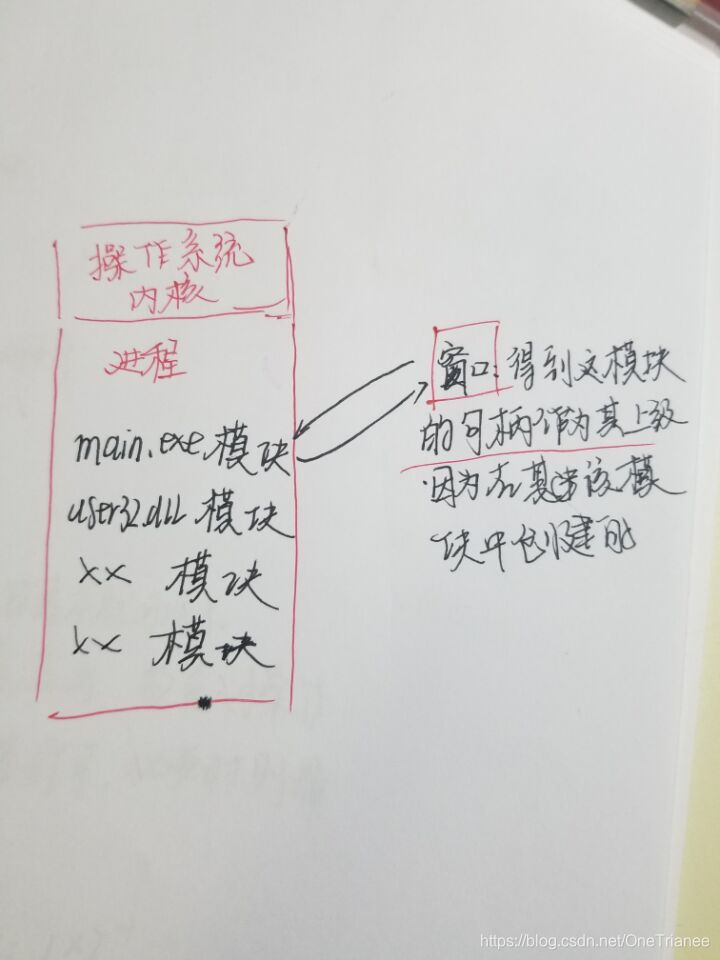 操作系统
内核
进程
main.exe.模块
user32.dll 模块
xx 模块
xx 模块
窗口:得到这模块
的句柄作为其上级
因为在其该模
块中创建的
https://blog.csdn.net/OneTrianee